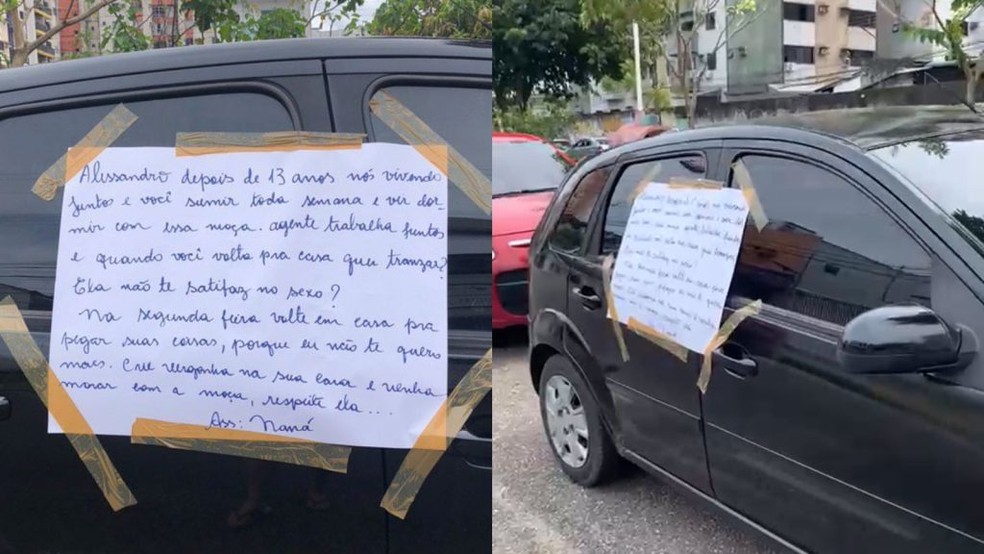 Alessandro depois de 13 anos nós vivendo
juntos e você sumir toda semana e vir dor-
mir com essa moça. agente trabalha juntos
e quando você volta pra casa queu tranzar?
Ela não te satifaz no sexo?
Na segunda feira volte em casa pra
pegar suas coisas, porque eu não te quero
mais. Crie vergonha na sua cara e venha
morar com a moça, respeite ela...
Ass: Naná